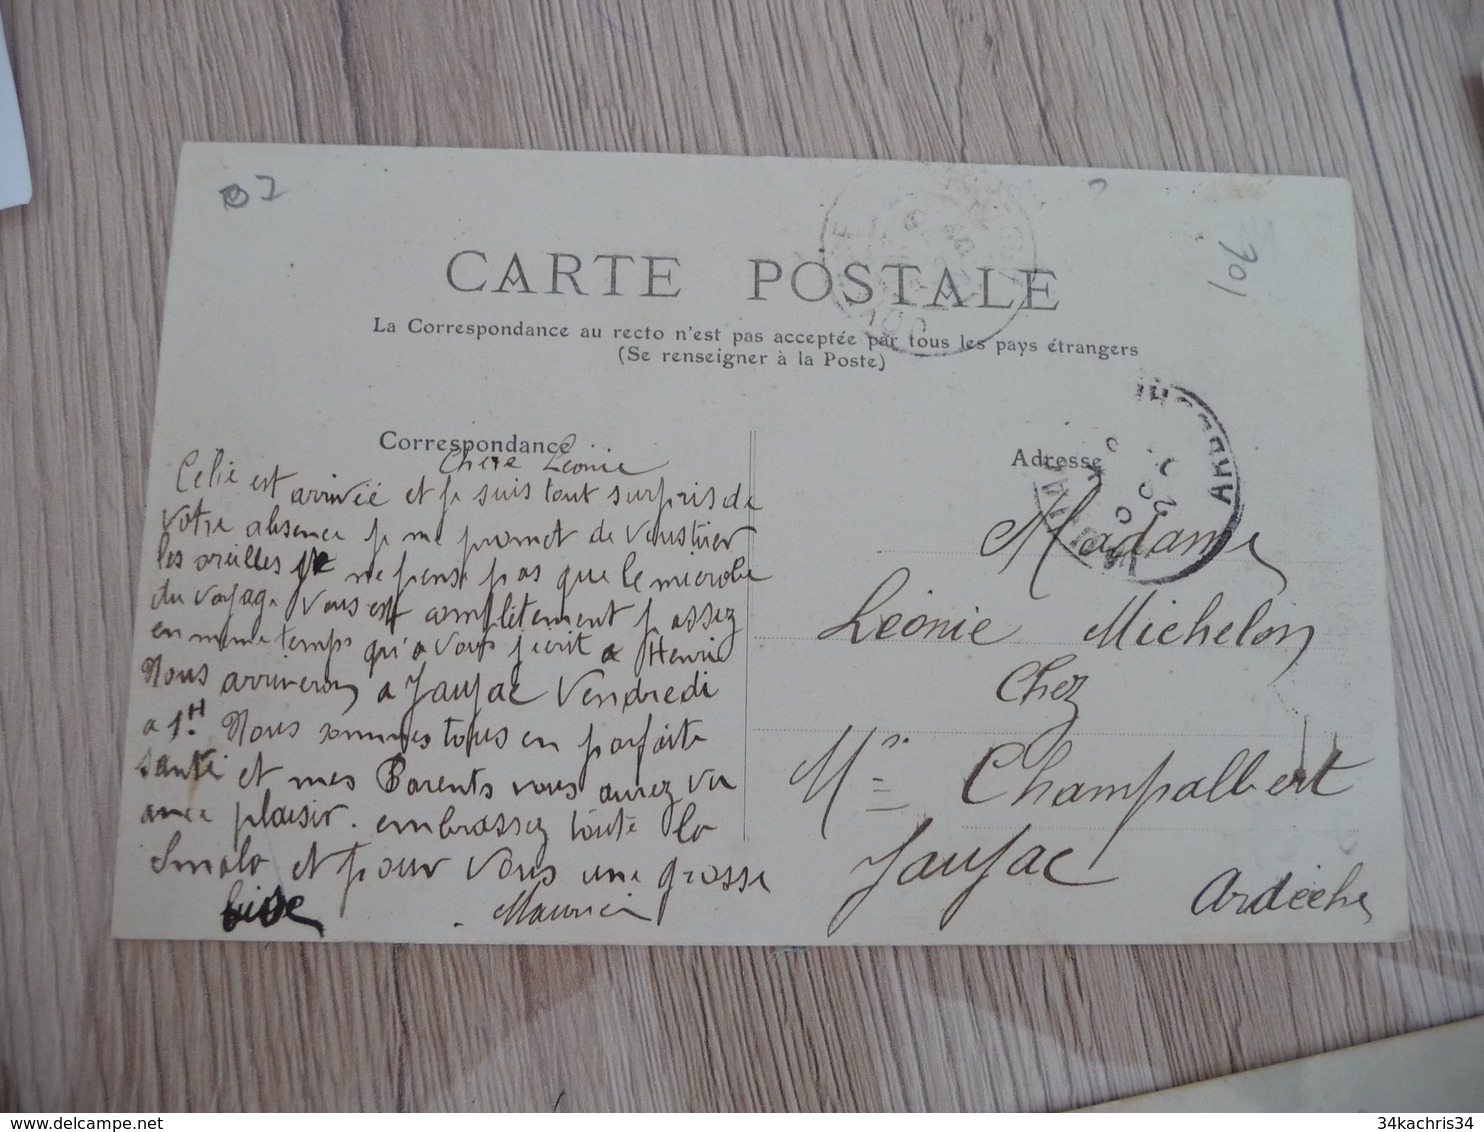 07
701
CARTE POSTALE
La Correspondance au recto n'est pas acceptée par tous les pays étrangers
(Se renseigner à la Poste)
Correspondance
Chere Léonie
Celie est arrivée et je suis tout surpris de
votre absence je me promet de vous tirer
les oreilles je ne pense pas que le microbe
du voyage vous est complètement passez
en meme temps qu'a vous j'ecrit a Henri
Nous arriverons a Jaujac Vendredi
a 1H. Nous sommes tous en parfaite
santé et mes Parents vous aurez vu
avec plaisir. embrassez toute la
smala et pour vous une grosse
bise
Maurice
Adresse
Madame
Léonie Michelon
Chez
Mr Champalbert
Jaujac
Ardèche
34kachris34